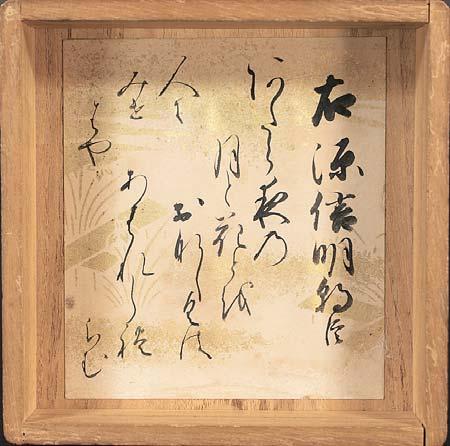 右源信明朝臣
あたら夜乃
月と花とを
おなしくは
あはれしれ
らむ
人に
みせ
はや